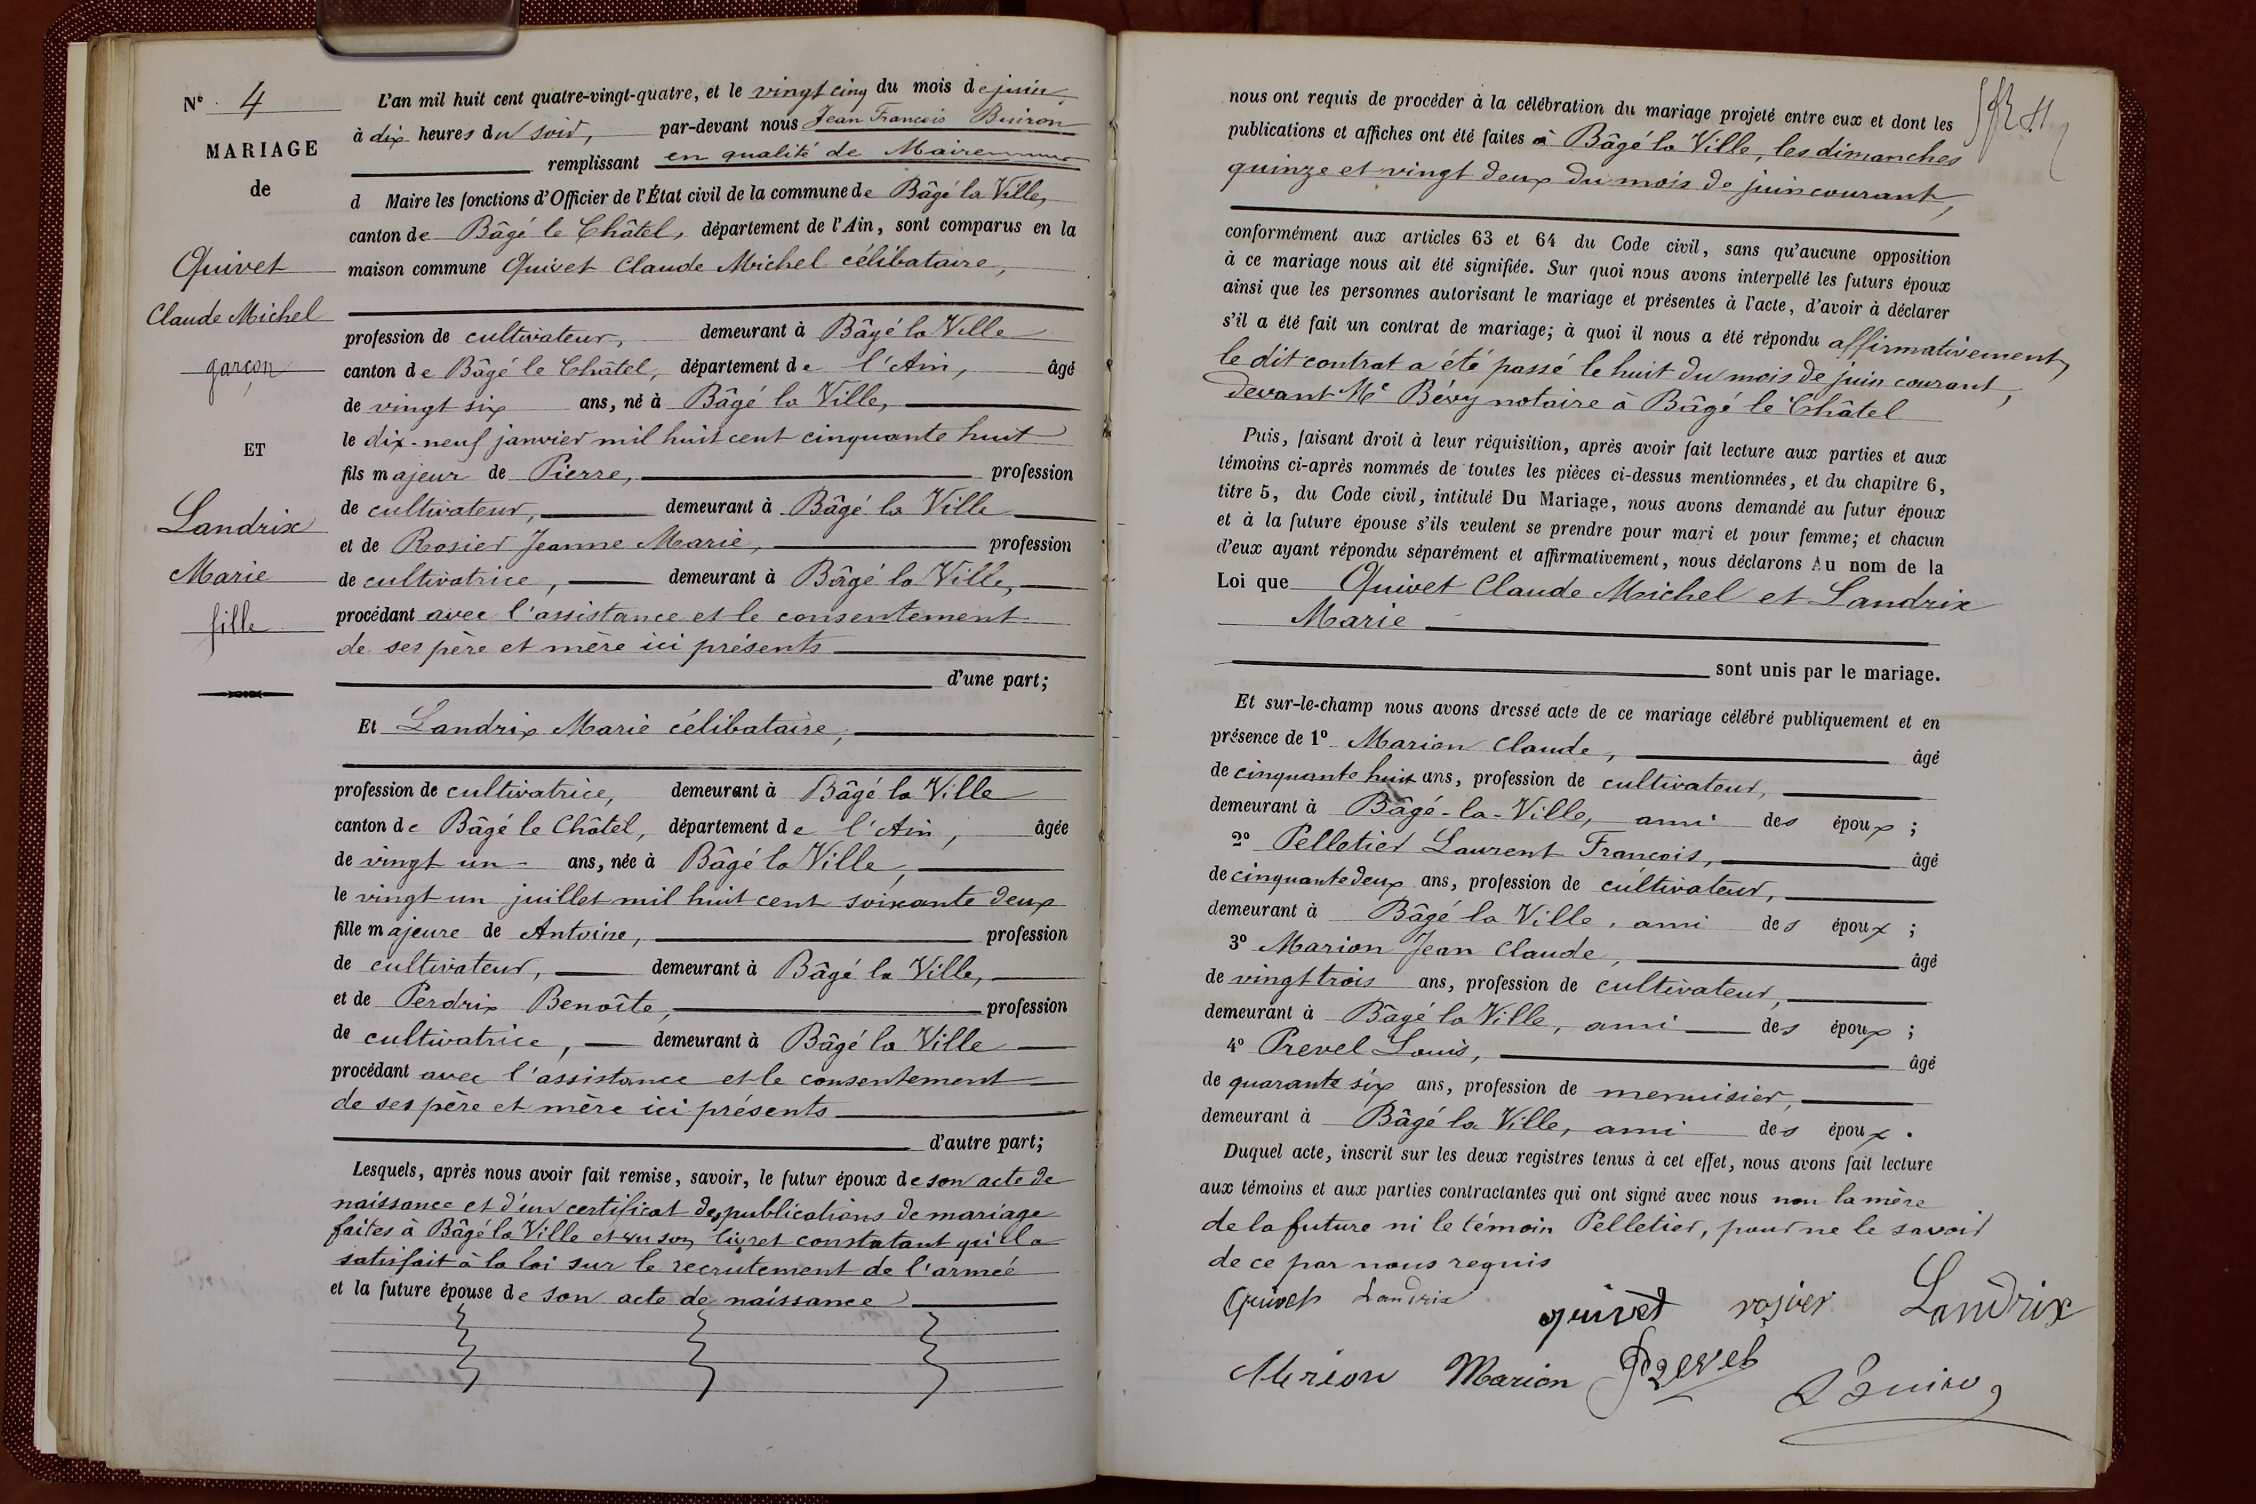 N° 4
MARIAGE
de
Quivet
Claude Michel
garçon
ET
Landrix
Marie
fille
L'an mil huit cent quatre-vingt-quatre, et le vingt cinq du mois de juin,
à dix heures du soir, par-devant nous Jean François Buiron
remplissant en qualité de Maire
d Maire les fonctions d'Officier de l'État civil de la commune de Bâgé la Ville,
canton de Bâgé le Châtel, département de l'Ain, sont comparus en la
maison commune Quivet Claude Michel célibataire,
profession de cultivateur, demeurant à Bâgé la Ville
canton de Bâgé le Châtel, département de l'Ain, âgé
de vingt six ans, né à Bâgé la Ville,
le dix-neuf janvier mil huit cent cinquante huit
fils majeur de Pierre, profession
de cultivateur, demeurant à Bâgé la Ville
et de Rosier Jeanne Marie, profession
de cultivatrice, demeurant à Bâgé la Ville,
procédant avec l'assistance et le consentement
de ses père et mère ici présents
d'une part;
Et Landrix Marie célibataire,
profession de cultivatrice, demeurant à Bâgé la Ville
canton de Bâgé le Châtel, département de l'Ain, âgée
de vingt un ans, née à Bâgé la Ville,
le vingt un juillet mil huit cent soixante deux
fille majeure de Antoine, profession
de cultivateur, demeurant à Bâgé la Ville,
et de Perdrix Benoîte, profession
de cultivatrice, demeurant à Bâgé la Ville
procédant avec l'assistance et le consentement
de ses père et mère ici présents
d'autre part;
Lesquels, après nous avoir fait remise, savoir, le futur époux de son acte de
naissance et d'un certificat des publications de mariage
faites à Bâgé la Ville et vu son livret constatant qu'il a
satisfait à la loi sur le recrutement de l'armeé
et la future épouse de son acte de naissance
nous ont requis de procéder à la célébration du mariage projeté entre eux et dont les
publications et affiches ont été faites à Bâgé la Ville, les dimanches
quinze et vingt deux du mois de juin courant,
conformément aux articles 63 et 64 du Code civil, sans qu'aucune opposition
à ce mariage nous ait été signifiée. Sur quoi nous avons interpellé les futurs époux
ainsi que les personnes autorisant le mariage et présentes à l'acte, d'avoir à déclarer
s'il a été fait un contrat de mariage; à quoi il nous a été répondu affirmativement,
le dit contrat a été passé le huit du mois de juin courant,
devant Me Béry notaire à Bâgé le Châtel
Puis, faisant droit à leur réquisition, après avoir fait lecture aux parties et aux
témoins ci-après nommés de toutes les pièces ci-dessus mentionnées, et du chapitre 6,
titre 5, du Code civil, intitulé Du Mariage, nous avons demandé au futur époux
et à la future épouse s'ils veulent se prendre pour mari et pour femme; et chacun
d'eux ayant répondu séparément et affirmativement, nous déclarons Au nom de la
Loi que Quivet Claude Michel et Landrix
Marie
sont unis par le mariage.
Et sur-le-champ nous avons dressé acte de ce mariage célébré publiquement et en
présence de 1° Marion Claude, âgé
de cinquante huit ans, profession de cultivateur,
demeurant à Bâgé-la-Ville, ami des époux;
2° Pelletier Laurent François, âgé
de cinquante deux ans, profession de cultivateur,
demeurant à Bâgé la Ville, ami des époux;
3° Marion Jean Claude, âgé
de vingt trois ans, profession de cultivateur,
demeurant à Bâgé la Ville, ami des époux;
4° Prevel Louis, âgé
de quarante six ans, profession de menuisier,
demeurant à Bâgé la Ville, ami des époux.
Duquel acte, inscrit sur les deux registres tenus à cet effet, nous avons fait lecture
aux témoins et aux parties contractantes qui ont signé avec nous non la mère
de la future ni le témoin Pelletier, pour ne le savoir
de ce par nous requis
Quivet Landrix quivet rosier Landrix
Marion Marion Prevel Buiron